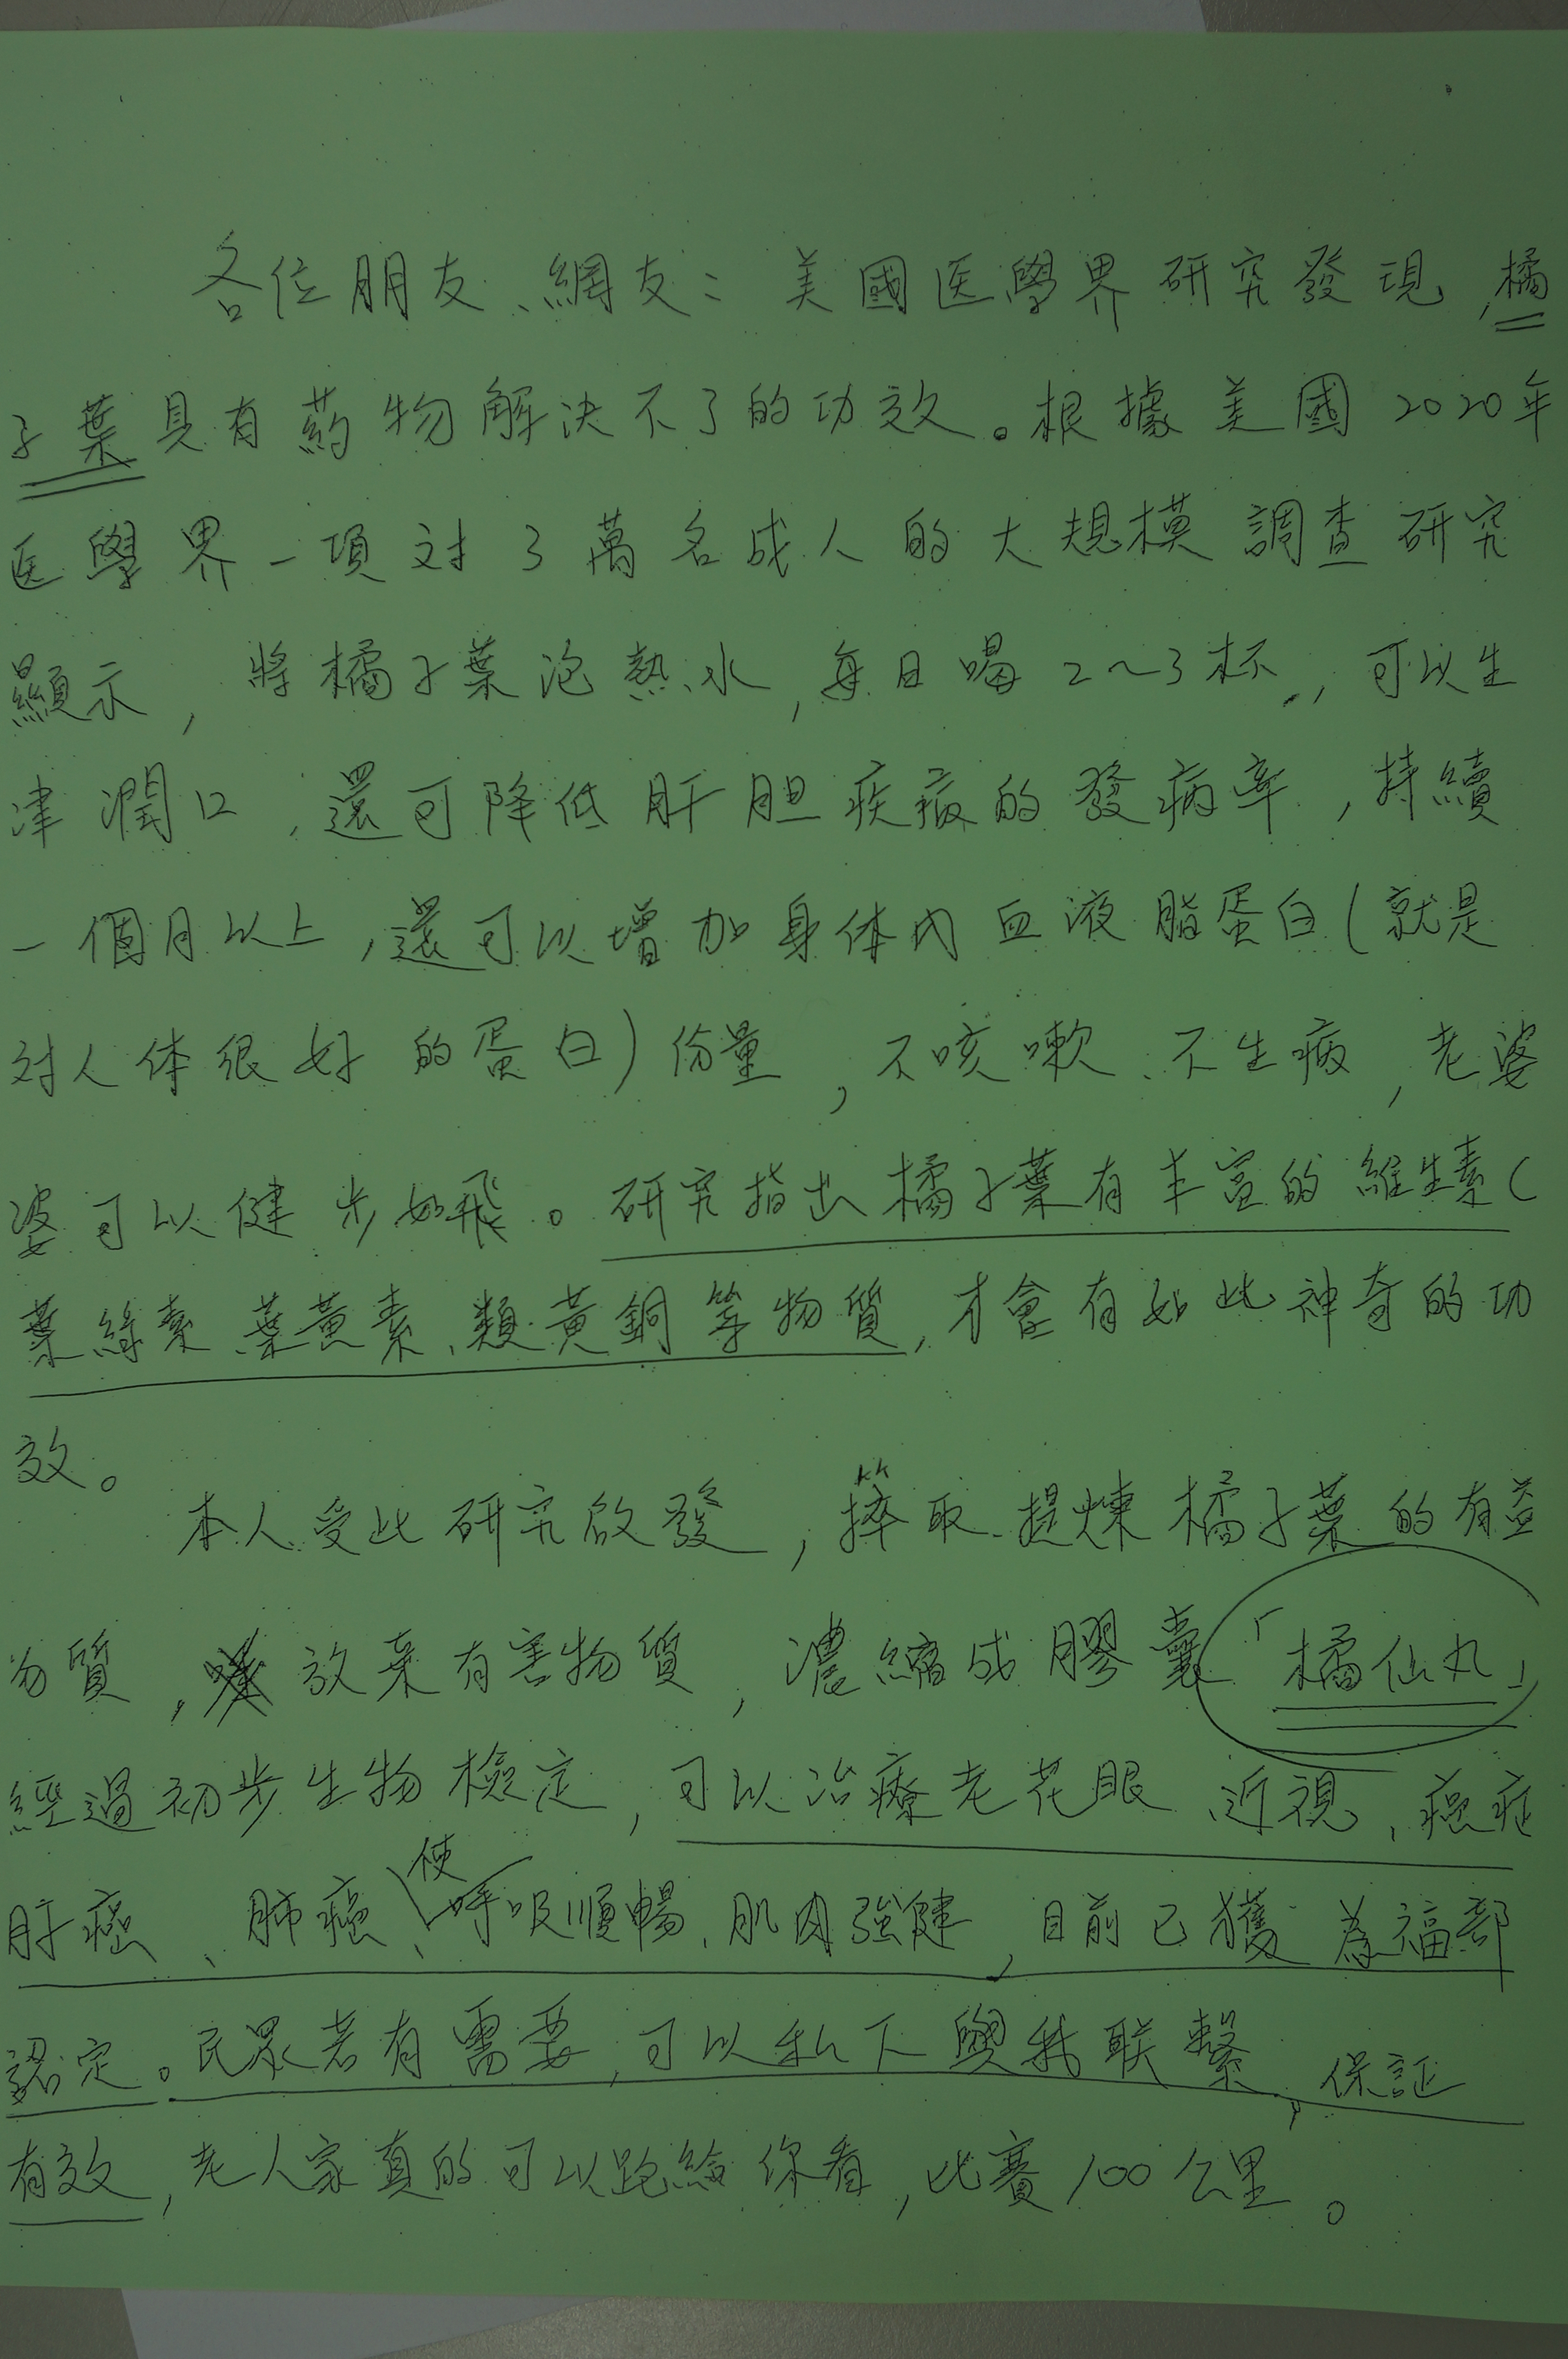 各位朋友、網友：美國医學界研究發現，橘
子葉具有葯物解決不了的功效。根據美國2020年
医學界一項对3萬名成人的大規模調查研究
顯示，將橘子葉泡熱水，每日喝2~3杯，可以生
津潤口，還可降低肝胆疾病的發病率，持續
一個月以上，還可以增加身体内血液脂蛋白(就是
对人体很好的蛋白)份量，不咳嗽、不生病，老婆
婆可以健步如飛。研究指出橘子葉有丰富的維生素C
葉綠素、葉黃素、類黃銅等物質，才會有如此神奇的功
效。
本人受此研究啟發，萃取提煉橘子葉的有益
物質，放棄有害物質，濃縮成膠囊「橘仙丸」
經過初步生物檢定，可以治療老花眼、近視、癌症
肝癌、肺癌、使呼吸順暢、肌肉強健，目前已獲為福部
認定。民眾若有需要，可以私下與我联繫，保証
有效，老人家真的可以跑給你看，比賽100公里。